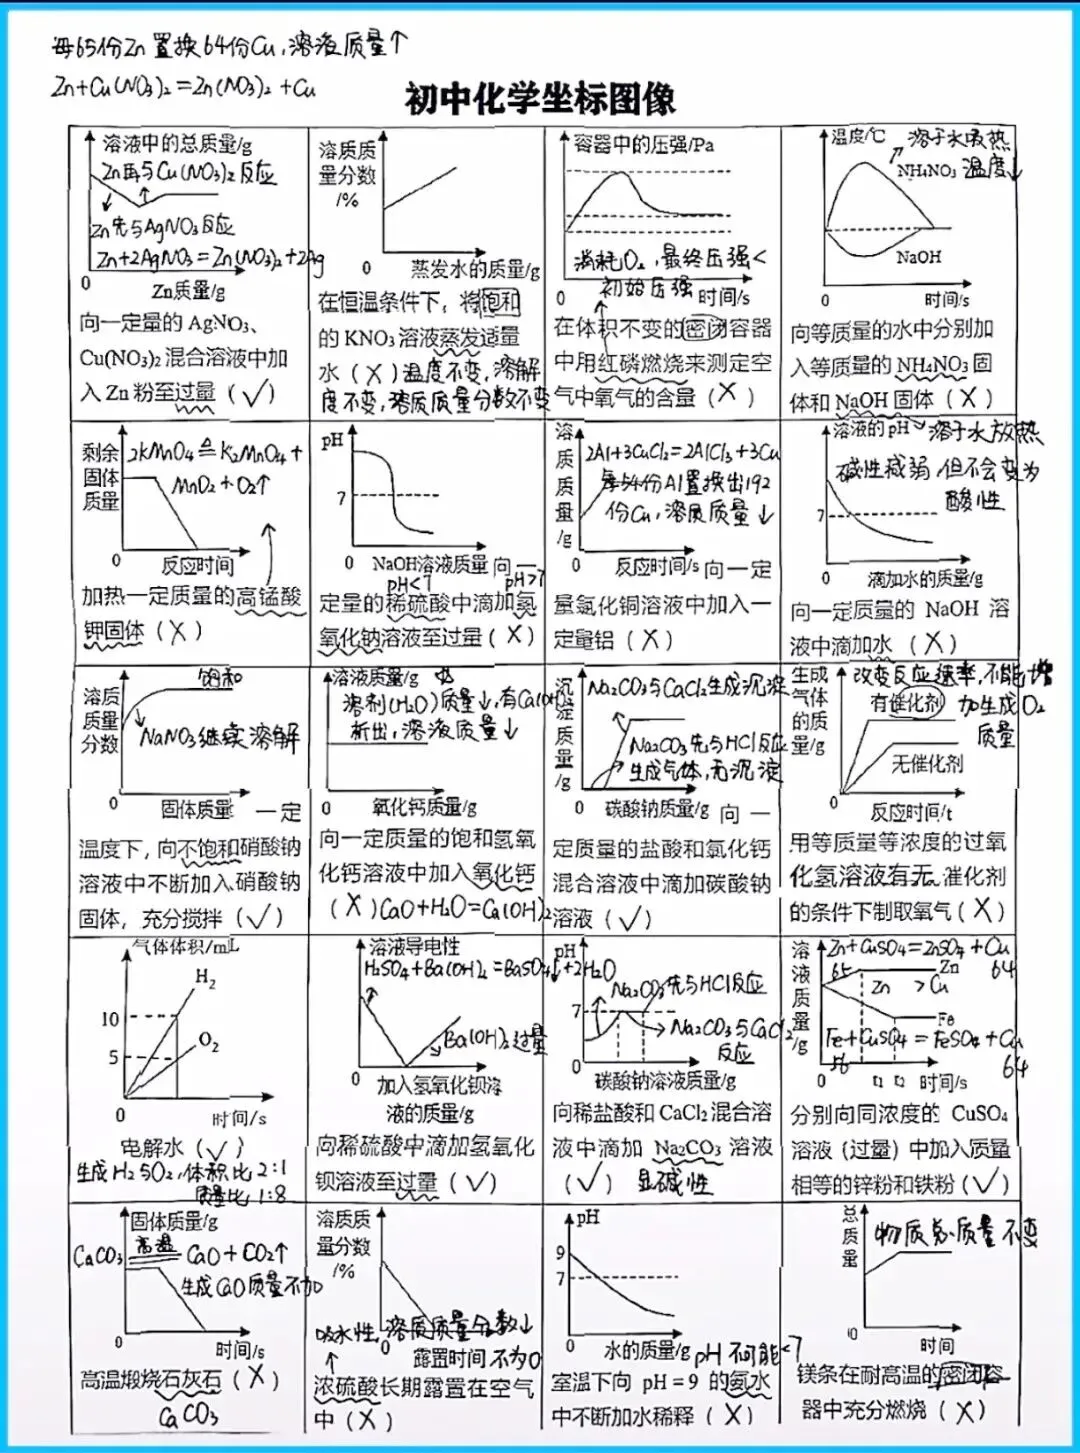 每65份Zn置换64份Cu,溶液质量↑
Zn+Cu(NO3)2=Zn(NO3)2+Cu
初中化学坐标图像
溶液中的总质量/g
Zn再与Cu(NO3)2反应
Zn先与AgNO3反应
Zn+2AgNO3=Zn(NO3)2+2Ag
0
Zn质量/g
向一定量的 AgNO3、
Cu(NO3)2混合溶液中加
入 Zn 粉至过量（√）
溶质质
量分数
/%
0
蒸发水的质量/g
在恒温条件下，将饱和
的 KNO3 溶液蒸发适量
水（X）温度不变,溶解
度不变,溶质质量分数不变
容器中的压强/Pa
消耗O2,最终压强<
初始压强
0
时间/s
在体积不变的密闭容器
中用红磷燃烧来测定空
气中氧气的含量（X）
温度/℃
溶于水吸热
NH4NO3 温度↓
NaOH
0
时间/s
向等质量的水中分别加
入等质量的 NH4NO3固
体和 NaOH 固体（X）
剩余
固体
质量
2KMnO4≜K2MnO4+
MnO2+O2↑
0
反应时间
加热一定质量的高锰酸
钾固体（X）
pH
7
0
NaOH溶液质量 向一
pH<7 pH>7
定量的稀硫酸中滴加氢
氧化钠溶液至过量（X）
溶
质
质
量
/g
2Al+3CuCl2=2AlCl3+3Cu
每54份Al置换出192
份Cu,溶质质量↓
0
反应时间/s 向一定
量氯化铜溶液中加入一
定量铝（X）
溶液的pH 溶于水放热
碱性减弱,但不会变为
酸性
7
0
滴加水的质量/g
向一定质量的 NaOH 溶
液中滴加水（X）
溶质
质量
分数
饱和
NaNO3继续溶解
0
固体质量 一定
温度下，向不饱和硝酸钠
溶液中不断加入硝酸钠
固体，充分搅拌（√）
溶液质量/g
溶剂(H2O)质量↓,有Ca(OH)2
析出,溶液质量↓
0
氧化钙质量/g
向一定质量的饱和氢氧
化钙溶液中加入氧化钙
（X）CaO+H2O=Ca(OH)2
沉
淀
质
量
/g
Na2CO3与CaCl2生成沉淀
Na2CO3先与HCl反应
生成气体,无沉淀
0
碳酸钠质量/g 向一
定质量的盐酸和氯化钙
混合溶液中滴加碳酸钠
溶液（√）
生成
气体
的质
量/g
改变反应速率,不能增
加生成O2
质量
有催化剂
无催化剂
0
反应时间/t
用等质量等浓度的过氧
化氢溶液有无催化剂
的条件下制取氧气（X）
气体体积/mL
H2
10
O2
5
0
时间/s
电解水（√）
生成H2与O2,体积比2:1
质量比1:8
溶液导电性
H2SO4+Ba(OH)2=BaSO4↓+2H2O
Ba(OH)2过量
0
加入氢氧化钡溶
液的质量/g
向稀硫酸中滴加氢氧化
钡溶液至过量（√）
pH
Na2CO3先与HCl反应
7
Na2CO3与CaCl2
反应
0
碳酸钠溶液质量/g
向稀盐酸和 CaCl2 混合溶
液中滴加 Na2CO3 溶液
（√） 显碱性
溶
液
质
量
/g
Zn+CuSO4=ZnSO4+Cu
65 Zn 64
Zn >Cu
Fe
Fe+CuSO4=FeSO4+Cu
56 64
0
t1 t2 时间/s
分别向同浓度的 CuSO4
溶液（过量）中加入质量
相等的锌粉和铁粉（√）
固体质量/g
CaCO3 高温 CaO+CO2↑
生成CaO质量不为0
0
时间/s
高温煅烧石灰石（X）
CaCO3
溶质质
量分数
/%
吸水性,溶质质量分数↓
0
露置时间 不为0
浓硫酸长期露置在空气
中（X）
pH
9
7
0
水的质量/g pH不可能<7
室温下向 pH＝9 的氨水
中不断加水稀释（X）
总
质
量
物质总质量不变
0
时间
镁条在耐高温的密闭容
器中充分燃烧（X）